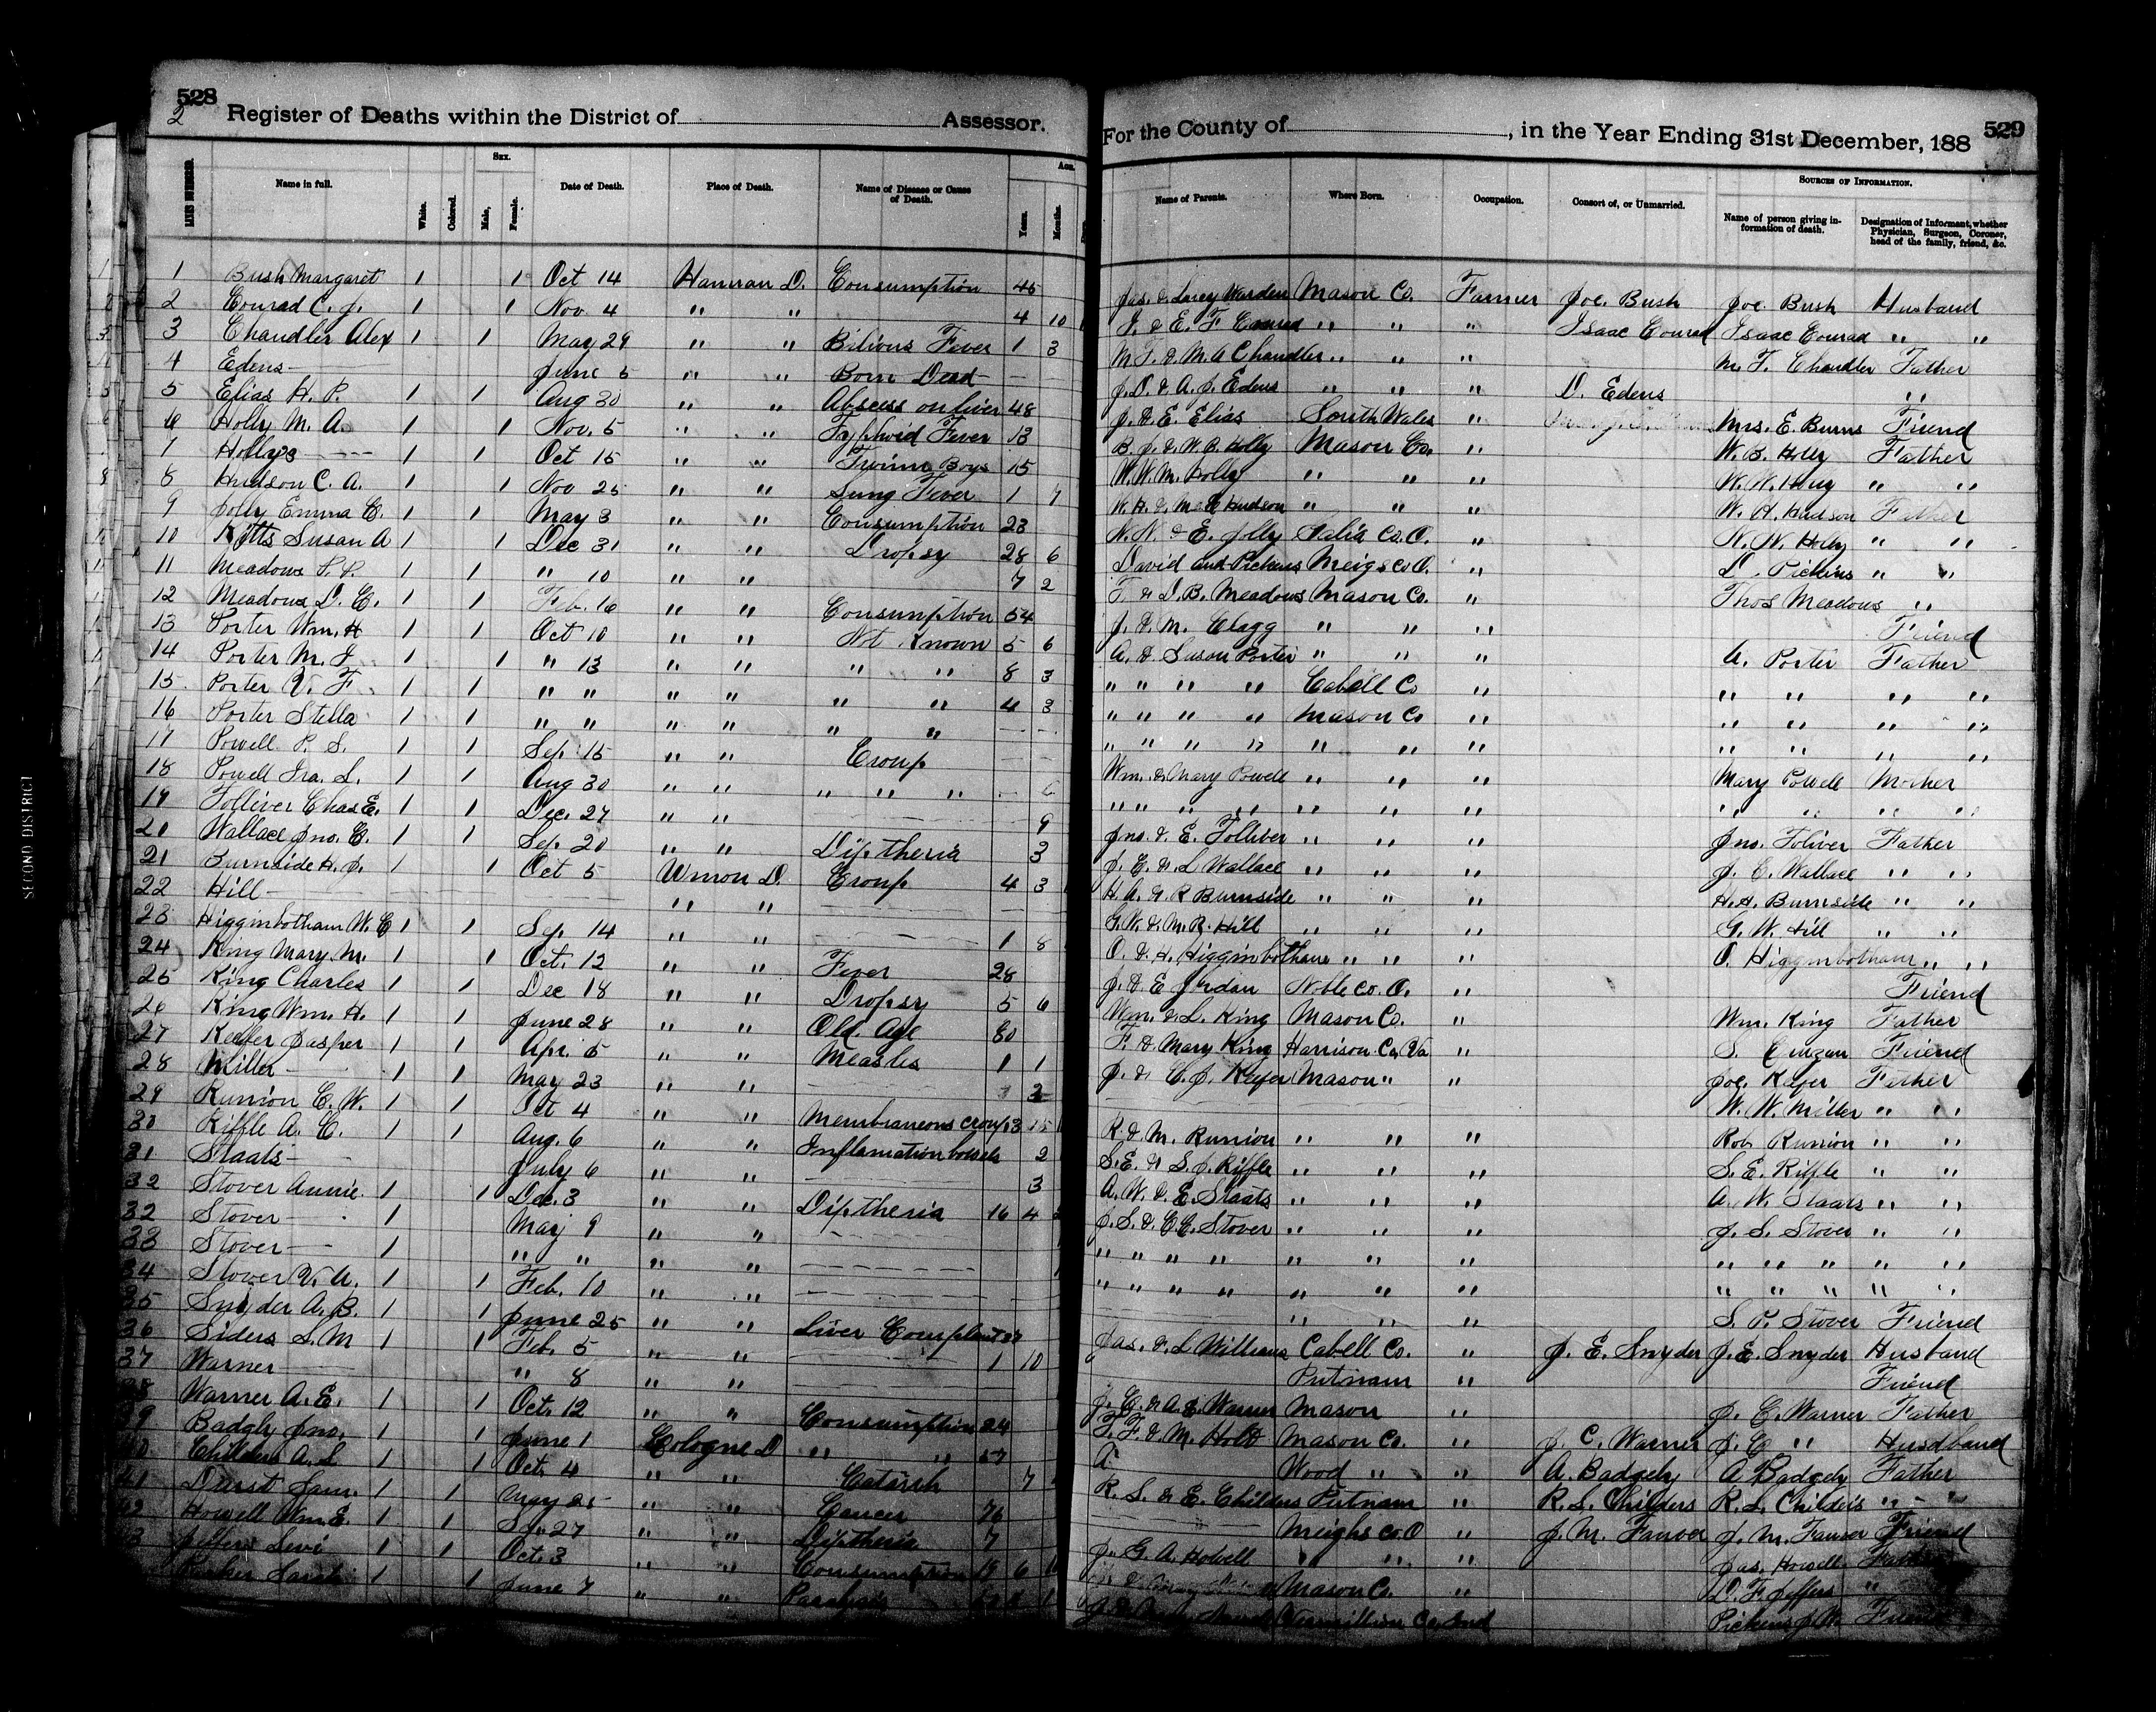 528
2
Register of Deaths within the District of Assessor.
LINE NUMBER. Name in full. White. Colored. Sex. Male, Female. Date of Death. Place of Death. Name of Disease or Cause of Death. Age. Years. Months.
1 Bush Margaret 1 1 Oct 14 Hannan D. Consumption 45
2 Conrad C. J. 1 1 Nov. 4 " " 4 10
3 Chandler Alex 1 1 May 29 " " Bilious Fever 1 3
4 Edens June 5 " " Born Dead
5 Elias H. P. 1 1 Aug 30 " " Abscess on liver 48
6 Holly M. A. 1 1 Nov. 5 " " Typhoid Fever 13
7 Holly's 1 1 Oct 15 " " Twins Boys 15
8 Hudson C. A. 1 1 Nov 25 " " Lung Fever 1 7
9 Jolly Emma C. 1 1 May 3 " " Consumption 23
10 Kitts Susan A 1 1 Dec 31 " " Dropsy 28 6
11 Meadows P. P. 1 1 " 10 " " 7 2
12 Meadows D. C. 1 1 Feb. 16 " " Consumption 54
13 Porter Wm. H 1 1 Oct 10 " " Not Known 5 6
14 Porter M. J 1 1 " 13 " " " " 8 3
15 Porter V. F. 1 1 " " " " " " 4 3
16 Porter Stella 1 1 " " " " " "
17 Powell P. S. 1 1 Sep. 15 " " Croup
18 Powell Ira. L. 1 1 Aug 30 " " " " " 6
19 Tolliver Chas E. 1 1 Dec. 27 " " 9
20 Wallace Jno. C. 1 1 Sep. 20 " " Diptheria 3
21 Burnside H. J. 1 1 Oct 5 Union D. Croup 4 3
22 Hill " "
23 Higginbotham W. C 1 1 Sep. 14 " " 1 8
24 King Mary M. 1 1 Oct. 12 " " Fever 28
25 King Charles 1 1 Dec 18 " " Dropsy 5 6
26 King Wm. H. 1 1 June 28 " " Old Age 80
27 Keefer Jasper 1 1 Apr. 5 " " Measles 1 1
28 Miller 1 1 May 23 " " 3
29 Runion C. W. 1 1 Oct 4 " " Membraneous croup 3
30 Riffle A. C. 1 1 Aug. 6 " " Inflamation bowels 2
31 Staats July 6 " " 3
32 Stover Annie. 1 1 Dec. 3 " " Diptheria 16 4
32 Stover 1 May 9 " "
33 Stover 1 " " " "
34 Stover V. A. 1 1 Feb. 10 " "
35 Snyder A. B. 1 1 June 25 " " Liver Complaint
36 Siders S. M 1 1 Feb. 5 " " 1 10
37 Warner " 8 " "
38 Warner A. E. 1 1 Oct. 12 " " Consumption 24
39 Badgly Jno. 1 1 June 1 Cologne D " " 57
40 Childers A. L 1 1 Oct. 4 " " Catarrh 7
41 Darst Sam. 1 1 May 25 " " Cancer 76
42 Howell Wm. E. 1 1 Sep. 27 " " Diptheria 7
43 Jeffers Levi 1 1 Oct. 3 " " Consumption 19 6
Sarah 1 1 June 7 " " Paralysis
529
For the County of , in the Year Ending 31st December, 188
Name of Parents. Where Born. Occupation. Consort of, or Unmarried. Sources of Information. Name of person giving information of death. Designation of Informant, whether Physician, Surgeon, Coroner, head of the family, friend, &c.
Jas. & Lucy Warden Mason Co. Farmer Joe. Bush Joe. Bush Husband
J. & E. F Conrad " " " Isaac Conrad Isaac Conrad " "
M. F. & M. A Chandler " " " M. F. Chandler Father
J. D. & A. J. Edens " " " D. Edens "
J. & E. Elias South Wales " Mrs. E. Burns Friend
B. J. & W. B. Holly Mason Co. " W. B. Holly Father
W. W. M. Holly " " W. W. Holly " "
W. H. & M. E Hudson " " " W. H. Hudson Father
N. N. & E. Jolly Galia Co. O. " N. N. Holly " "
David and Pickens Meigs Co O. " D. Pickins " "
T. & D. B. Meadows Mason Co. " Thos Meadows "
J. & M. Clagg " " " Friend
A. & Susan Porter " " " A. Porter Father
" " " " Cabell Co " " " " "
" " " " Mason Co " " " " "
" " " " " " " " " " "
Wm. & Mary Powell " " " Mary Powell Mother
" " " " " " " " " " "
Jno. & E. Tolliver " " " Jno. Toliver Father
J. C. & L Wallace " " " J. C. Wallace " "
H. A. & R Burnside " " " H. A. Burnside " "
G. W. & M. R. Hill " " " G. W. Hill " "
O. & H. Higginbotham " " " O. Higginbotham " "
J. & E Jordan Noble Co. O. " Friend
Wm. & L. King Mason Co. " Wm. King Father
F. & Mary King Harrison Co, Va " S. Friend
J. & C. J. Keefer Mason " " Joe. Keefer Father
W. W. Miller " "
R. & M. Runion " " " Rob Runion " "
S. E. & S. J. Riffle " " " S. E. Riffle " "
A. W. & E. Staats " " " A. W. Staats " "
J. S. & C. C. Stover " " " J. S. Stover " "
" " " " " " " " " " " "
" " " " " " " " " " " "
" " " S. P. Stover Friend
Jas. & L Williams Cabell Co. " J. E. Snyder J. E. Snyder Husband
Putnam " Friend
J. C. & A. E. Warner Mason " J. C. Warner Father
T. F. & M. Holt Mason Co. " J. C. Warner J. C " Husdband
A. Wood " " A. Badgely A Badgely Father
R. S. & E. Childers Putnam " R. S. Childers R. S. Childers " "
Meighs Co. O " J. M. Fauver J. M. Fauver Friend
J. G. A. Howell " " " Jas. Howell Father
Mason Co. " D. F. Jeffers "
Vermillion Co, Ind Pickens J. W. Friend
SECOND DISTRICT